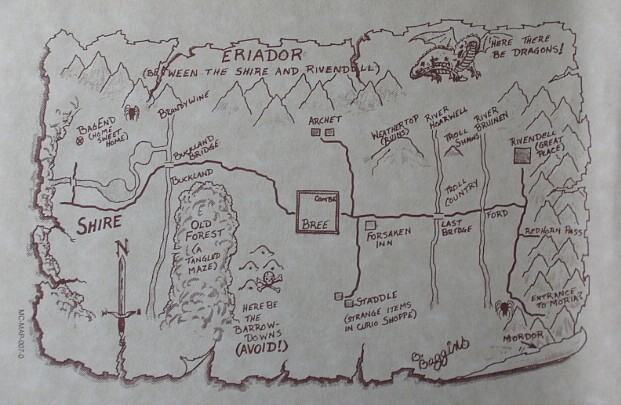 ERIADOR
(BETWEEN THE SHIRE AND RIVENDELL)
HERE THERE
BE DRAGONS!
BAGEND
(HOME
SWEET
HOME)
BRANDYWINE
BUCKLAND
BRIDGE
BUCKLAND
ARCHET
WEATHERTOP
(RUINS)
RIVER
HOARWELL
TROLL
SHAWS
RIVER
BRUINEN
RIVENDELL
(GREAT
PLACE)
TROLL
COUNTRY
SHIRE
OLD
FOREST
(A
TANGLED
MAZE)
COMBE
BREE
FORSAKEN
INN
LAST
BRIDGE
FORD
REDHORN PASS
N
HERE BE
THE
BARROW-
DOWNS
(AVOID!)
STADDLE
(STRANGE ITEMS
IN CURIO SHOPPE)
ENTRANCE
TO MORIA?
MORDOR
B. Baggins